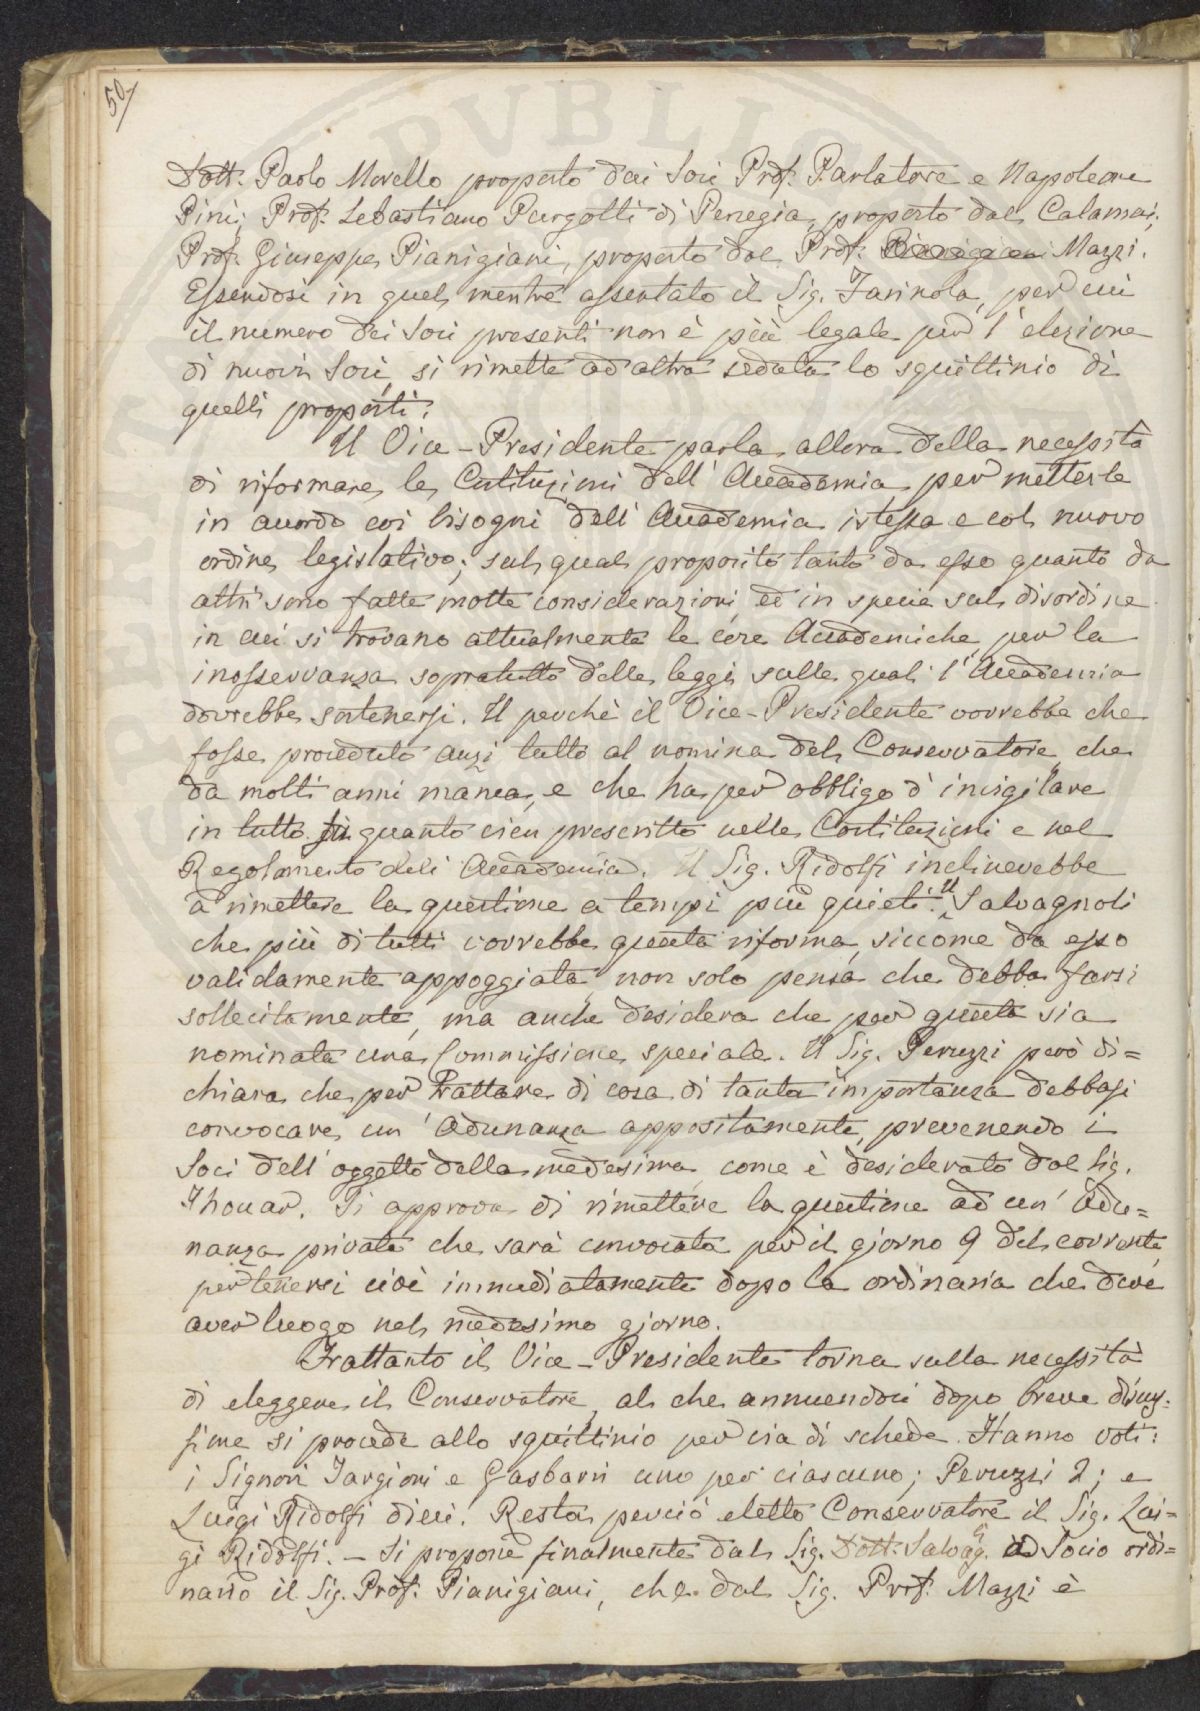 50
Dott. Paolo Morello proposto dai Soci Prof. Parlatore e Napoleone
Pini; Prof. Sebastiano Purgotti di Perugia, proposto dal Calamai;
Prof. Giuseppe Pianigiani, proposto dal Prof. Pianigiani Mazzi.
Essendosi in quel mentre assentato il Sig. Farinola, per cui
il numero dei Soci presenti non è più legale per l'elezione
di nuovi Soci, si rimette ad altra seduta lo squittinio di
quelli proposti.
Il Vice-Presidente parla allora della necessità
di riformare le Costituzioni dell'Accademia per metterle
in accordo coi bisogni dell'Accademia istessa e col nuovo
ordine legislativo; sul qual proposito tanto da esso quanto da
altri sono fatte molte considerazioni ed in specie sul disordine
in cui si trovano attualmente le cose Accademiche per la
inosservanza sopratutto delle leggi sulle quali l'Accademia
dovrebbe sostenersi. Il perchè il Vice-Presidente vorrebbe che
fosse proceduto anzi tutto al nomina del Conservatore, che
da molti anni manca, e che ha per obbligo d'invigilare
in tutto quanto vien prescritto nelle Costituzioni e nel
Regolamento dell'Accademia. Il Sig. Ridolfi inclinerebbe
a rimettere la questione a tempi più quieti. Il Salvagnoli
che più di tutti vorrebbe questa riforma, siccome da esso
validamente appoggiata non solo pensa che debba farsi
sollecitamente, ma anche desidera che per questa sia
nominata una Commissione speciale. Il Sig. Peruzzi però di=
chiara che per trattare di cosa di tanta importanza debbasi
convocare un'Adunanza appositamente, prevenendo i
Soci dell'oggetto della medesima, come è desiderato dal Sig.
Thouar. Si approva di rimettere la questione ad un'Adu=
nanza privata che sarà convocata per il giorno 9 del corrente
per tenersi cioè immediatamente dopo la ordinaria che deve
aver luogo nel medesimo giorno.
Frattanto il Vice-Presidente torna sulla necessità
di eleggere il Conservatore, al che annuendosi dopo breve discus=
sione si procede allo squittinio per via di schede. Hanno voti:
i Signori Targioni e Gasbarri uno per ciascuno; Peruzzi 2; e
Luigi Ridolfi dieci. Resta perciò eletto Conservatore il Sig. Lui=
gi Ridolfi. – Si propone finalmente dal Sig. Dott. Salvag. a Socio ordi=
nario il Sig. Prof. Pianigiani, che dal Sig. Prof. Mazzi è